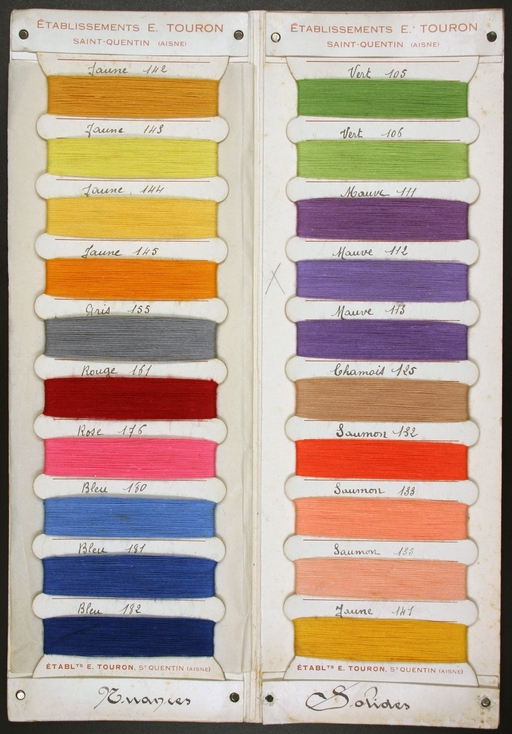 ÉTABLISSEMENTS E. TOURON
SAINT-QUENTIN (AISNE)
Jaune 142
Jaune 143
Jaune 144
Jaune 145
Gris 155
Rouge 161
Rose 176
Bleu 180
Bleu 181
Bleu 182
ÉTABLTS E. TOURON, ST QUENTIN (AISNE)
Nuances
ÉTABLISSEMENTS E. TOURON
SAINT-QUENTIN (AISNE)
Vert 105
Vert 106
Mauve 111
Mauve 112
X
Mauve 113
Chamois 125
Saumon 132
Saumon 133
Saumon
Jaune 141
ÉTABLTS E. TOURON, ST QUENTIN (AISNE)
Solides